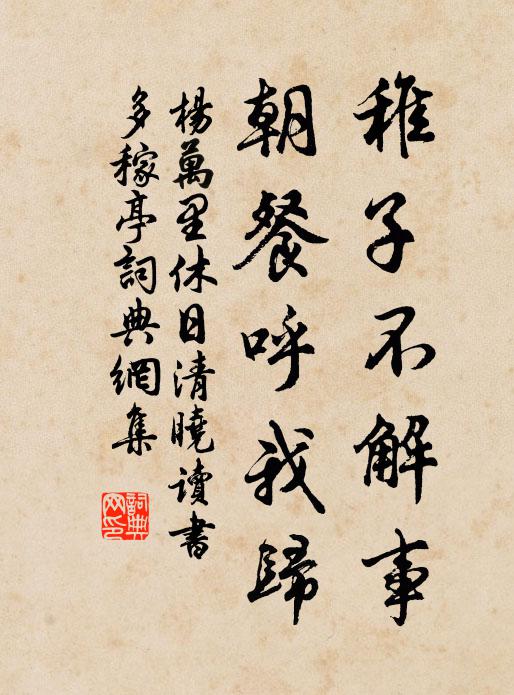 稚子不解事
朝餐呼我歸
楊萬里休日清曉讀書
多稼亭詞典網集
詞典
网印